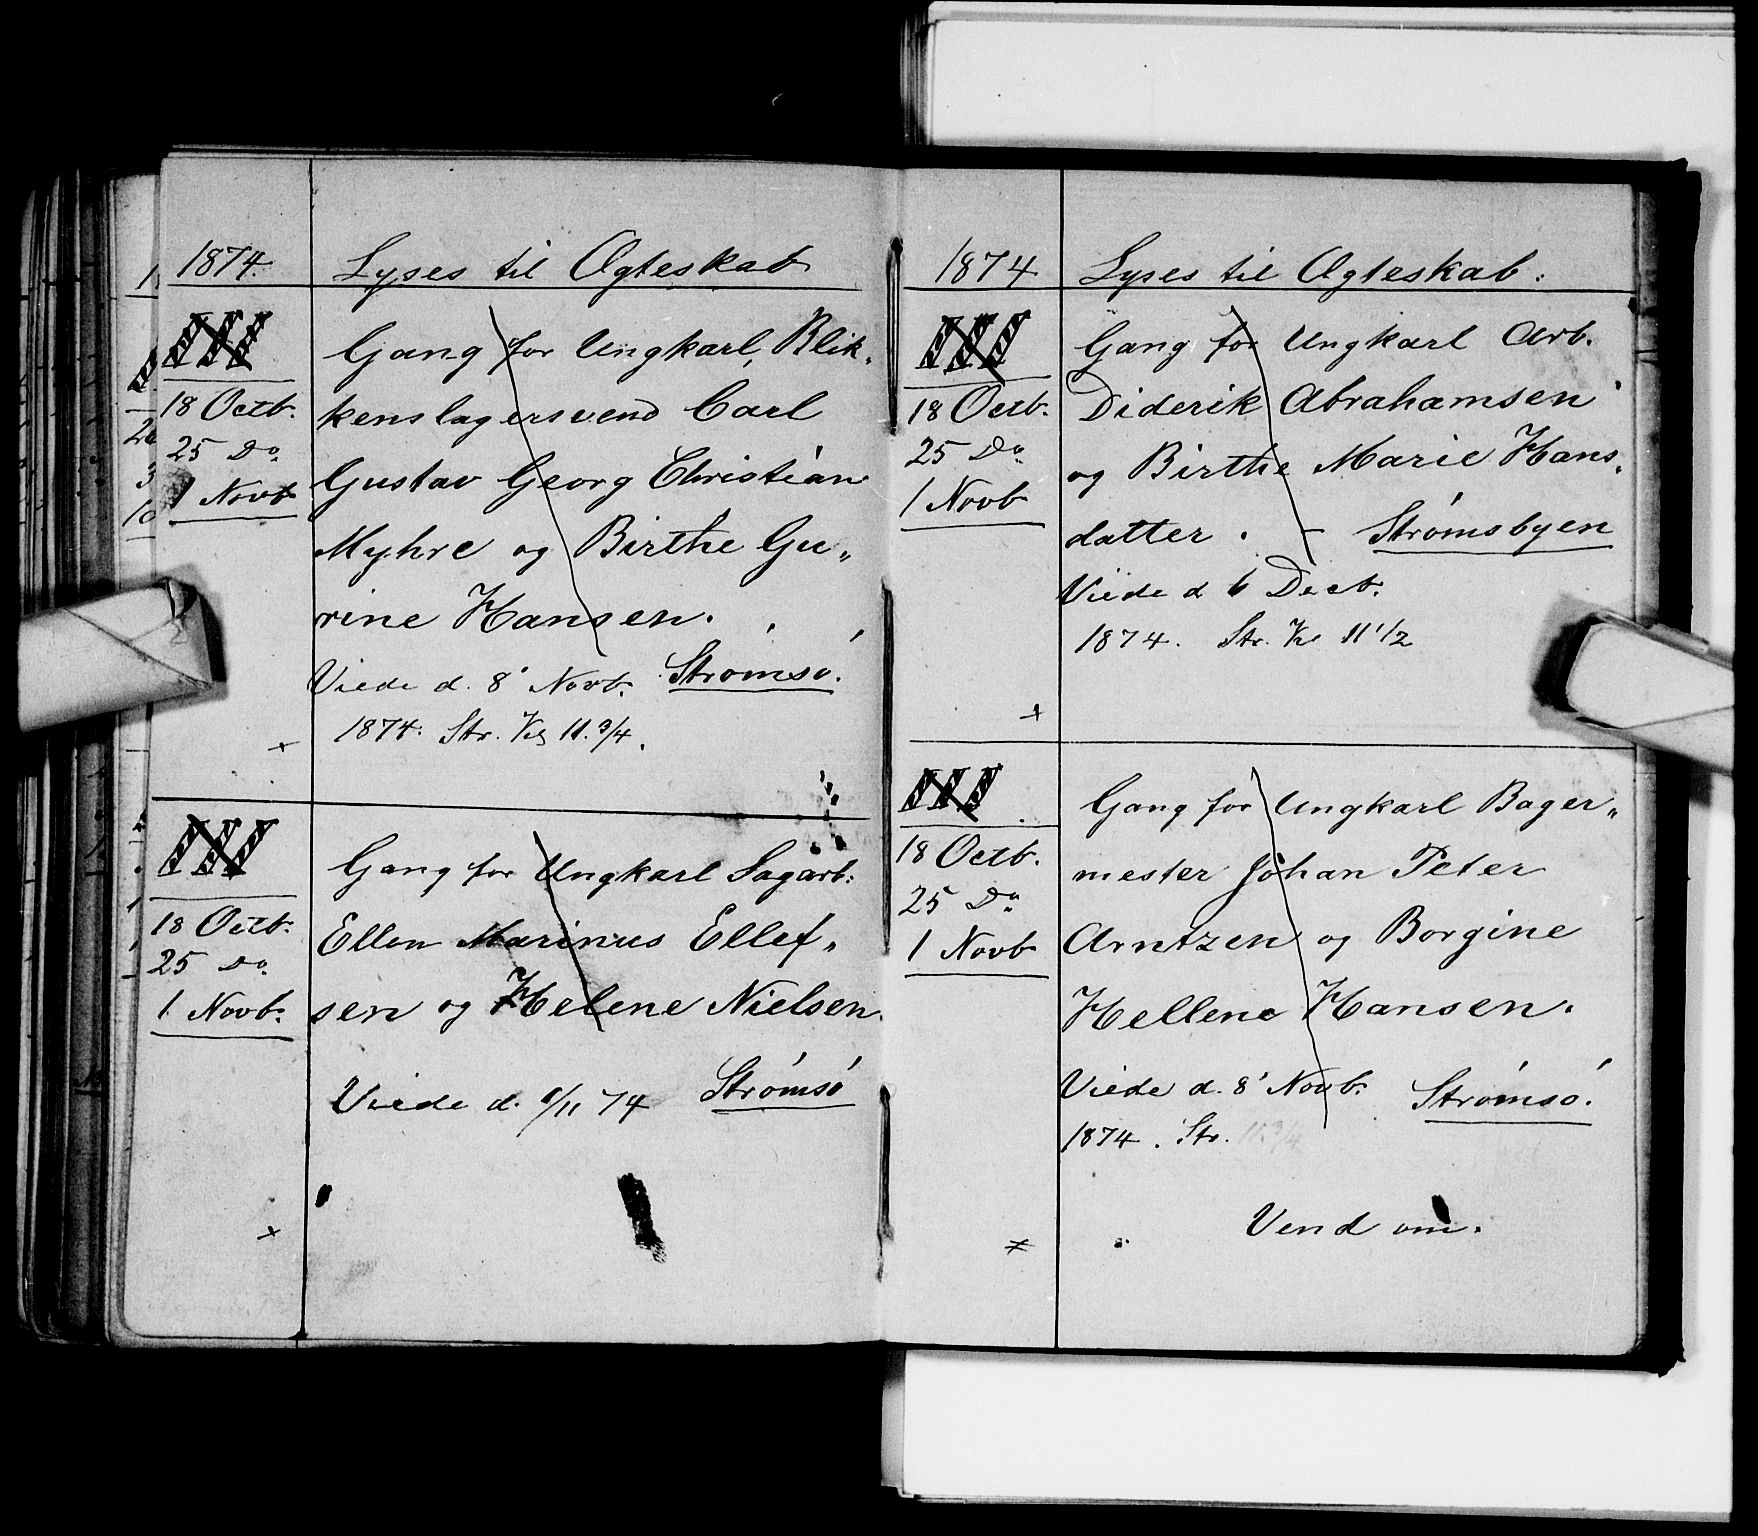 1874. Lyses til Ægteskab
III
18 Octb.
25 Do.
1 Novb
Gang for Ungkarl, Blik-
kenslagersvend Carl
Gustav Georg Christian
Myhre og Birthe Gu„
rine Hansen.
Viede d. 8' Novb. Strømsø.
1874. Str. Kl 11.3/4.
+
III
18 Octb.
25 Do.
1 Novb.
Gang for Ungkarl Sagarb:
Ellen Marinus Ellef„
sen og Helene Nielsen.
Viede d. 8/11 74 Strømsø
+
1874 Lyses til Ægteskab:
III
18 Octb.
25 Do.
1 Novb
Gang for Ungkarl Arb.
Diderik Abrahamsen
og Birthe Marie Hans-
datter. - Strømsbyen
Viede d 6 Decb.
1874. Str. Kl 11 1/2
+
III
18 Octb.
25 Do.
1 Novb
Gang for Ungkarl Bager„
mester Johan Peter
Arntzen og Borgine
Hellene Hansen.
Viede d. 8' Novb. Strømsø.
1874. Str. 11 3/4
Vend om.
+